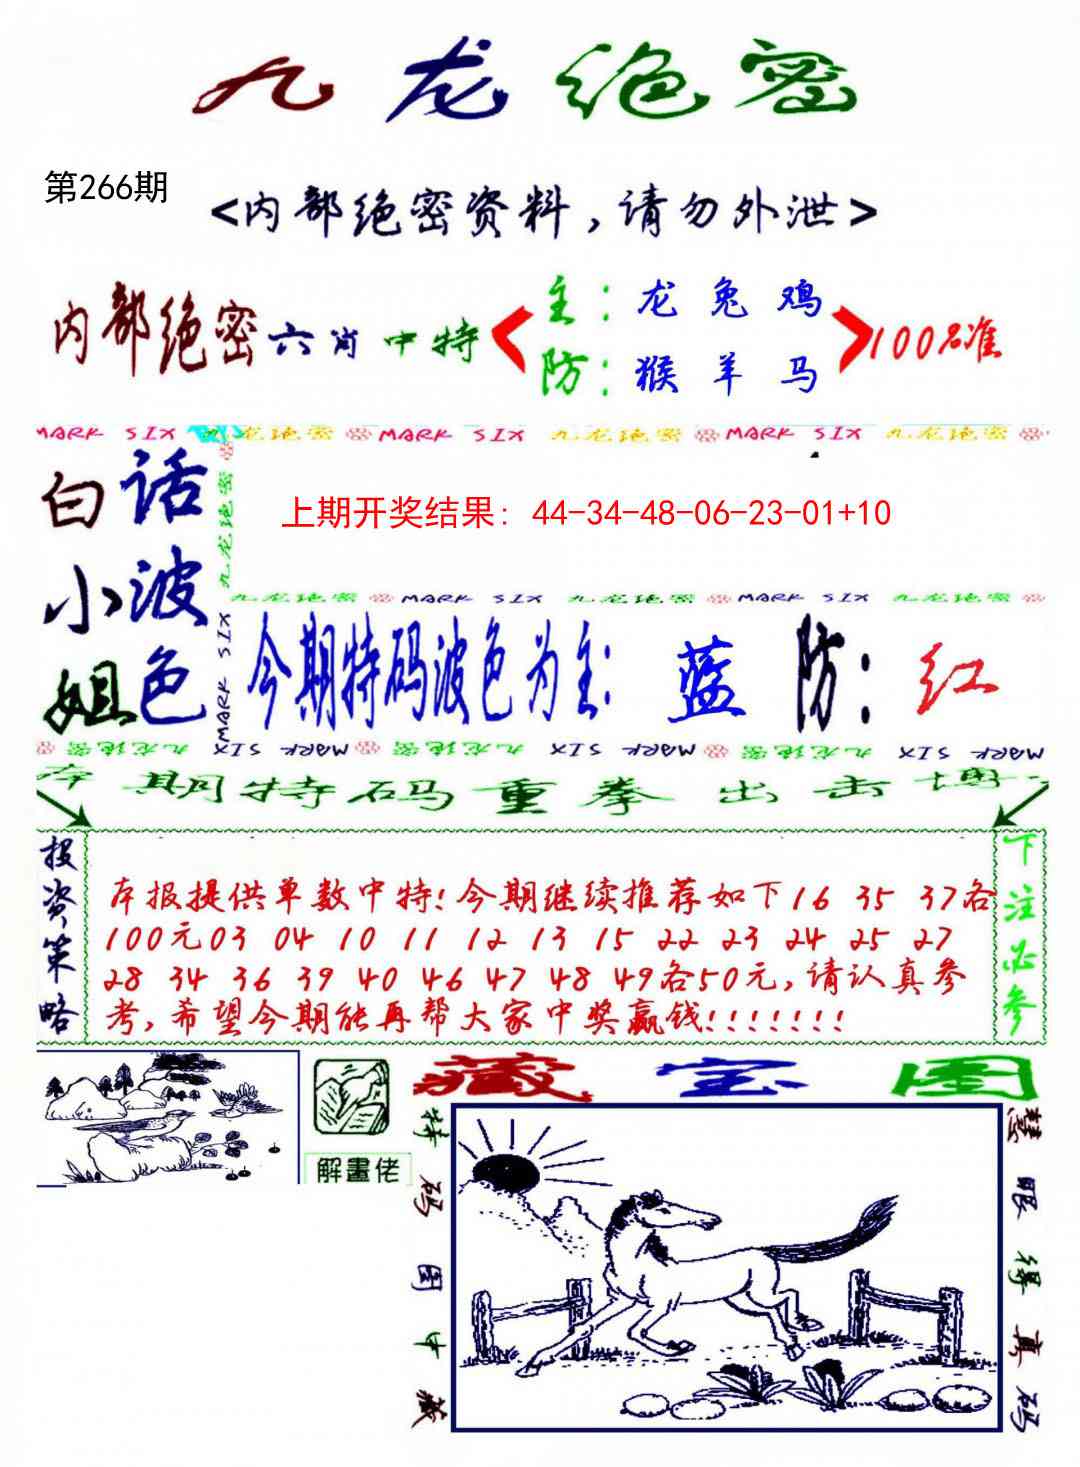 九龙绝密
第266期
<内部绝密资料，请勿外泄>
内部绝密六肖中特
主：龙兔鸡
防：猴羊马
100%准
MARK SIX 九龙绝密 MARK SIX 九龙绝密 MARK SIX 九龙绝密
白小姐
话波色
九龙绝密
MARK SIX
上期开奖结果: 44-34-48-06-23-01+10
九龙绝密 MARK SIX 九龙绝密 MARK SIX 九龙绝密
今期特码波色为主: 蓝 防: 红
九龙绝密 MARK SIX 九龙绝密 MARK SIX 九龙绝密 MARK SIX
本期特码重拳出击博
投资策略
本报提供单数中特!今期继续推荐如下16 35 37各
100元03 04 10 11 12 13 15 22 23 24 25 27
28 34 36 39 40 46 47 48 49各50元,请认真参
考,希望今期能再帮大家中奖赢钱!!!!!!!
下注必参
解畫佬
藏宝图
特码图中藏
慧眼得真码